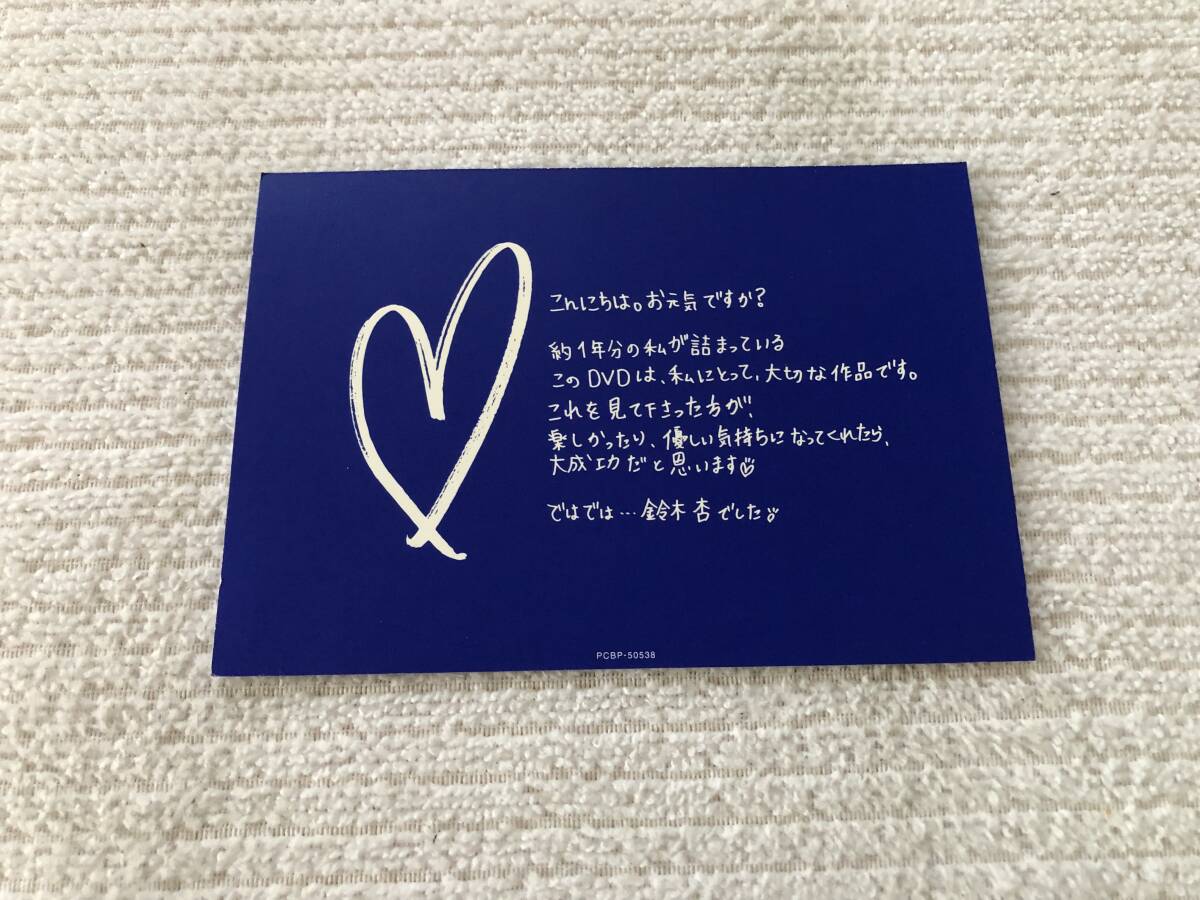 こんにちは。お元気ですか?
約1年分の私が詰まっている
このDVDは、私にとって、大切な作品です。
これを見て下さった方が、
楽しかったり、優しい気持ちになってくれたら、
大成功だと思います♡
ではでは…鈴木杏でした
PCBP-50538